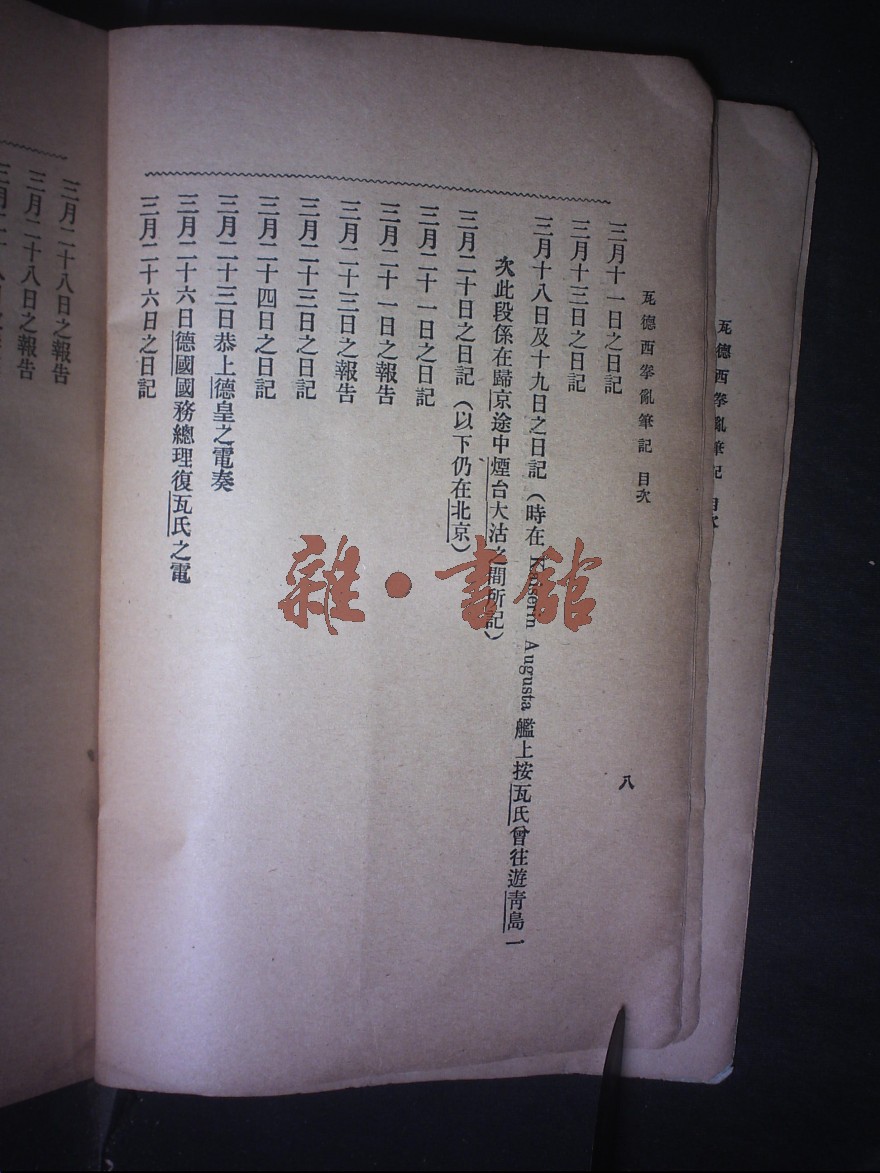 瓦德西拳亂筆記 目次
瓦德西拳亂筆記 目次
八
三月十一日之日記
三月十三日之日記
三月十八日及十九日之日記(時在 Kaiserin Augusta 艦上按瓦氏曾往遊青島一
次此段係在歸京途中煙台大沽之間所記)
三月二十日之日記(以下仍在北京)
三月二十一日之日記
三月二十一日之報告
三月二十三日之報告
三月二十三日之日記
三月二十四日之日記
三月二十三日恭上德皇之電奏
三月二十六日德國國務總理復瓦氏之電
三月二十六日之日記
三月二十八日之報告
三月二十八日之報告
雜·書館